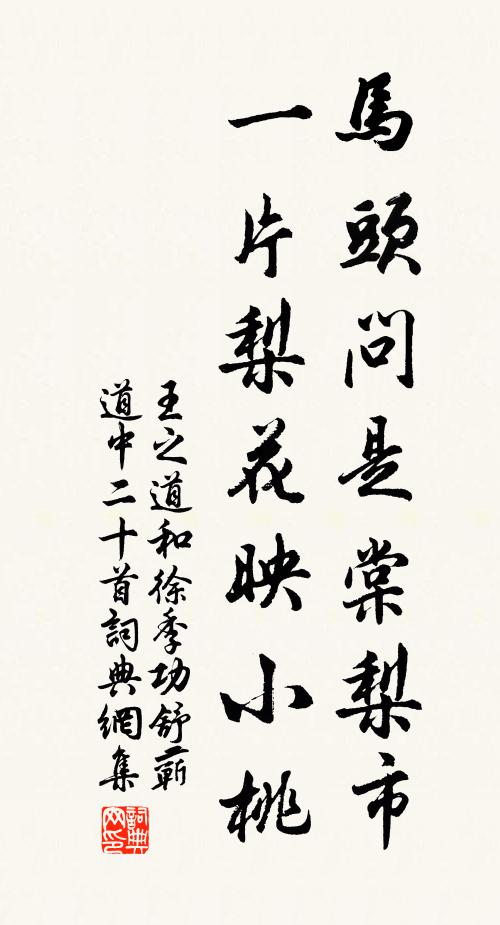 馬頭問是棠梨市
一片梨花映小桃
王之道和徐季功舒蘄
道中二十首詞典網集
詞典网印